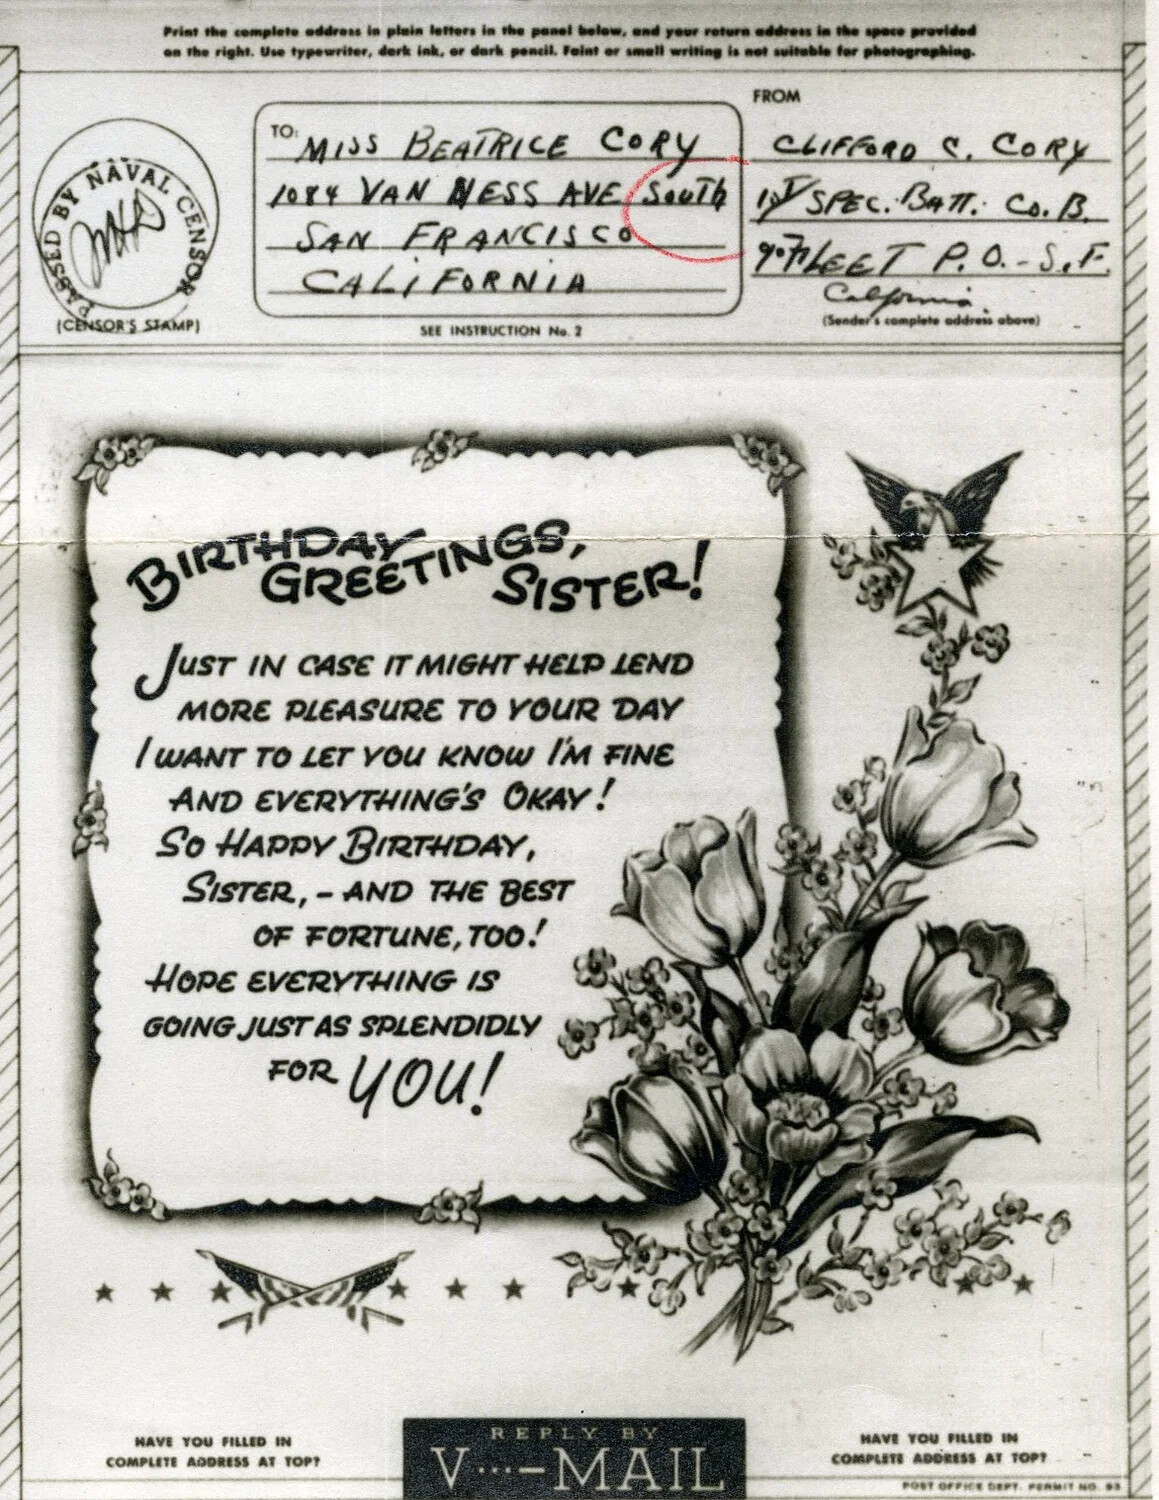 Print the complete address in plain letters in the panel below, and your return address in the space provided
on the right. Use typewriter, dark ink, or dark pencil. Faint or small writing is not suitable for photographing.
PASSED BY NAVAL CENSOR
(CENSOR'S STAMP)
TO:
MISS BEATRICE CORY
1084 VAN NESS AVE SOUTH
SAN FRANCISCO
CALIFORNIA
SEE INSTRUCTION No. 2
FROM
CLIFFORD C. CORY
SPEC. BATT. CO. B.
FLEET P.O. - S.F.
California.
(Sender's complete address above)
BIRTHDAY
GREETINGS,
SISTER!
JUST IN CASE IT MIGHT HELP LEND
MORE PLEASURE TO YOUR DAY
I WANT TO LET YOU KNOW I'M FINE
AND EVERYTHING'S OKAY!
SO HAPPY BIRTHDAY,
SISTER, - AND THE BEST
OF FORTUNE, TOO!
HOPE EVERYTHING IS
GOING JUST AS SPLENDIDLY
FOR YOU!
HAVE YOU FILLED IN
COMPLETE ADDRESS AT TOP?
REPLY BY
V···—MAIL
HAVE YOU FILLED IN
COMPLETE ADDRESS AT TOP?
POST OFFICE DEPT. PERMIT NO. 93